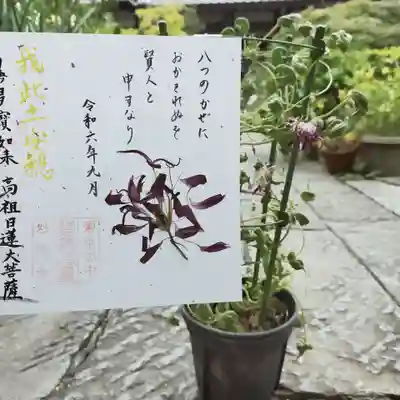 八つのかぜに
おかされぬを
賢人と
申すなり
令和六年九月
我此土安穏
高祖日蓮大菩薩